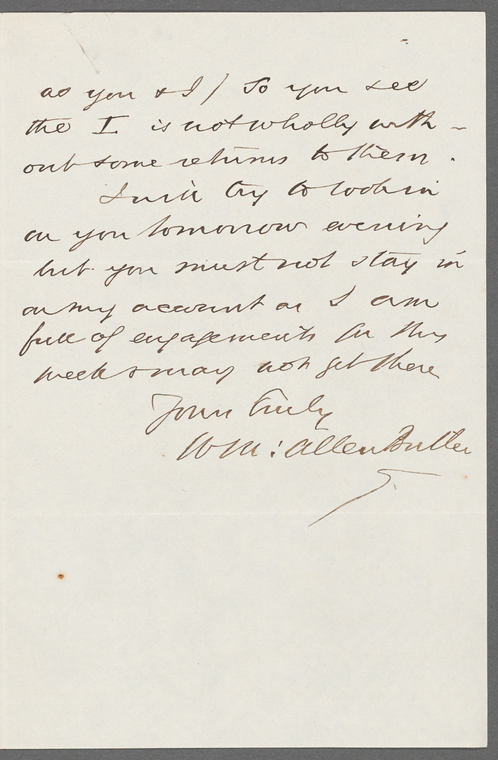 as you & I) So you see
the I. is not wholly with-
out some returns to them.
I will try to look in
on you tomorrow evening
but you must not stay in
on my account as I am
full of engagements for this
week & may not get there
Yours truly
Wm: Allen Butler